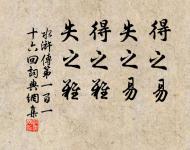 得之易
失之易
得之難
失之難
水滸傳第一百一
十六回詞典網集